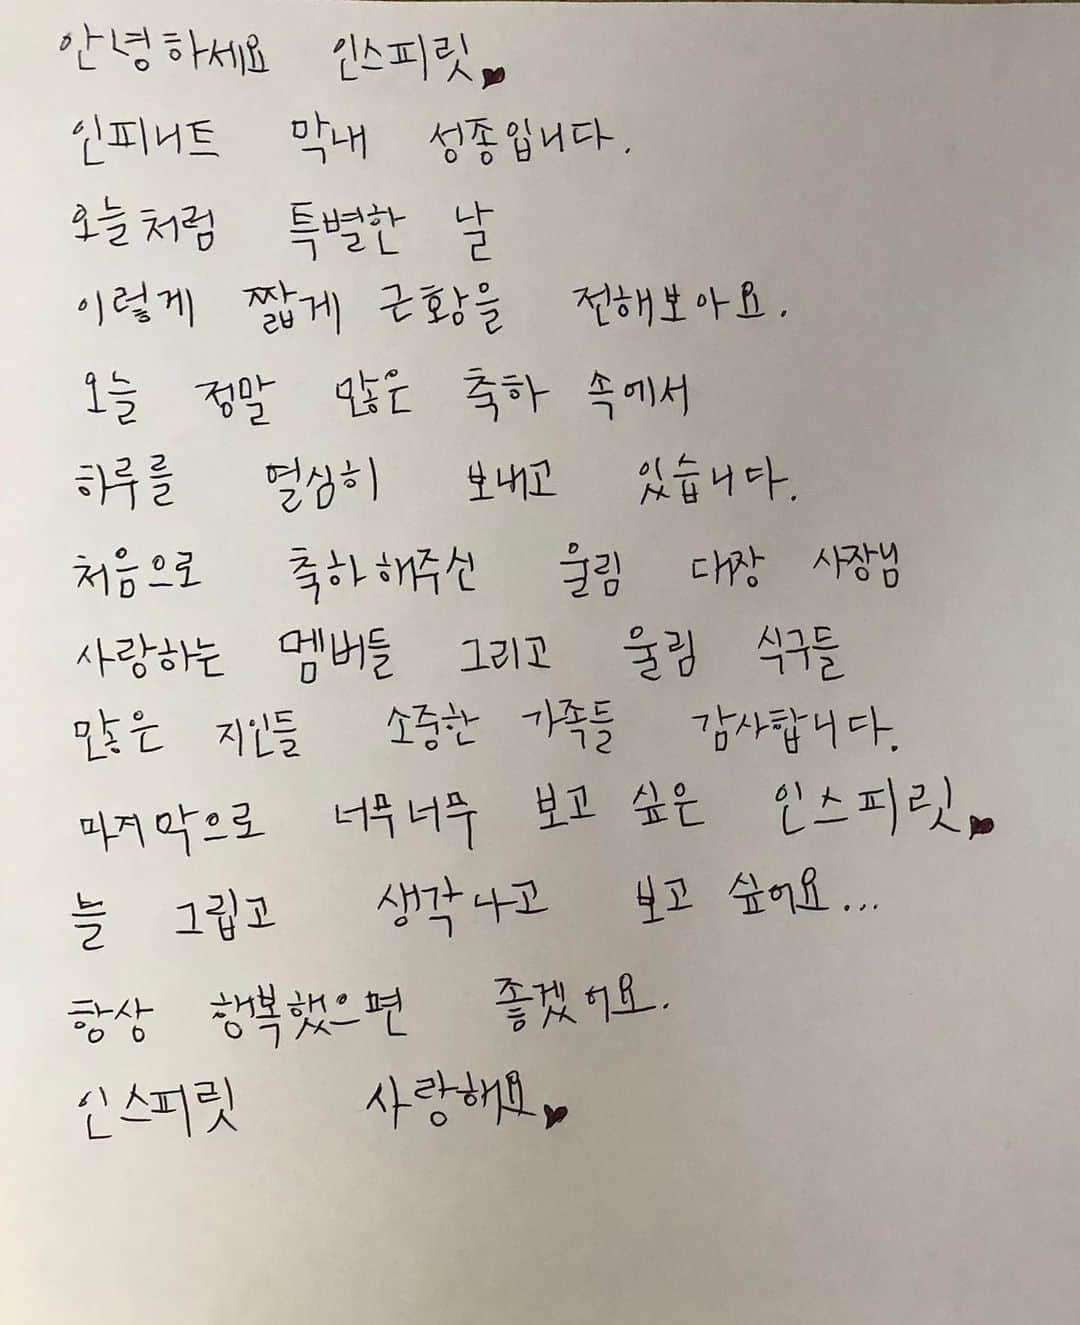 안녕하세요 인스피릿♥
인피니트 막내 성종입니다.
오늘처럼 특별한 날
이렇게 짧게 근황을 전해보아요.
오늘 정말 많은 축하 속에서
하루를 열심히 보내고 있습니다.
처음으로 축하해주신 울림 대장 사장님
사랑하는 멤버들 그리고 울림 식구들
많은 지인들 소중한 가족들 감사합니다.
마지막으로 너무너무 보고 싶은 인스피릿♥
늘 그립고 생각나고 보고 싶어요...
항상 행복했으면 좋겠어요.
인스피릿 사랑해요♥